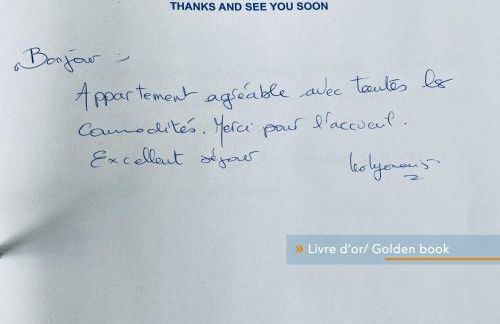 THANKS AND SEE YOU SOON
Bonjour :
Appartement agréable avec toutes les
commodités. Merci pour l'accueil.
Excellent séjour.
les lyonnais
» Livre d'or/ Golden book